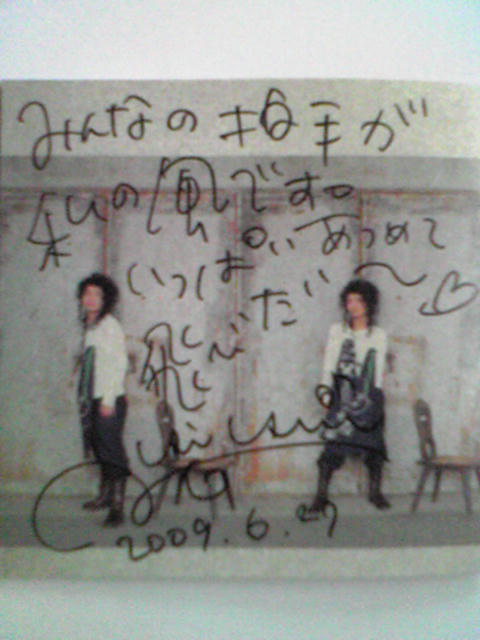 みんなの拍手が
私の風です。
いっぱいあつめて
飛んだ〜♡
2009.6.27